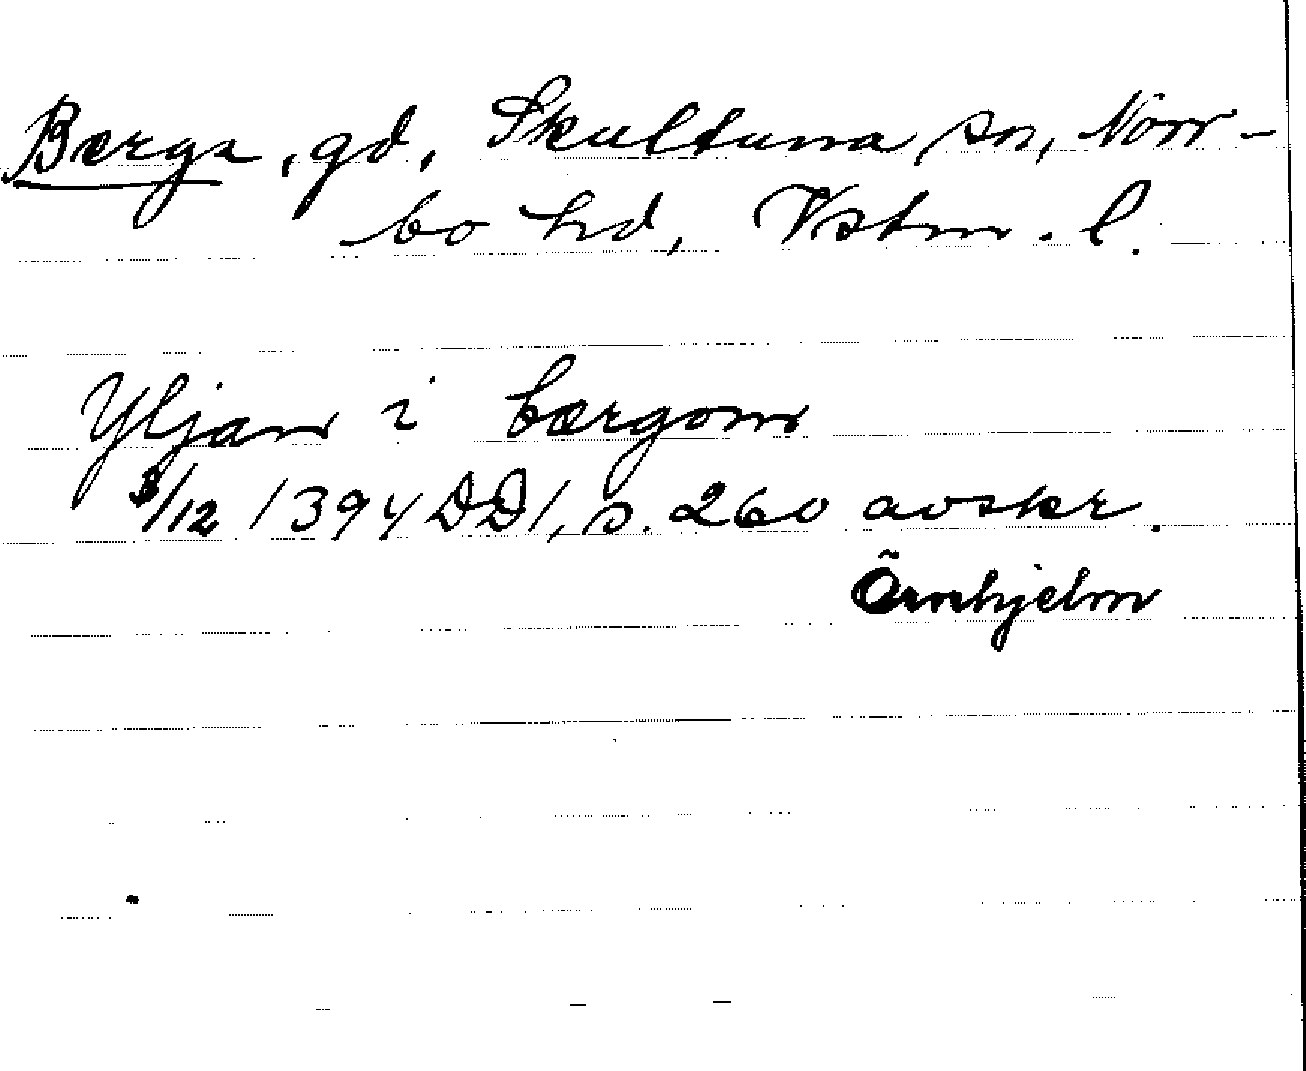 Berga, gd, Skultuna sn, Norr-
bo hd, Vstm. l.
Yljan i bærgom
3/12 1394 DD1, s. 260 avskr.
Örnhjelm